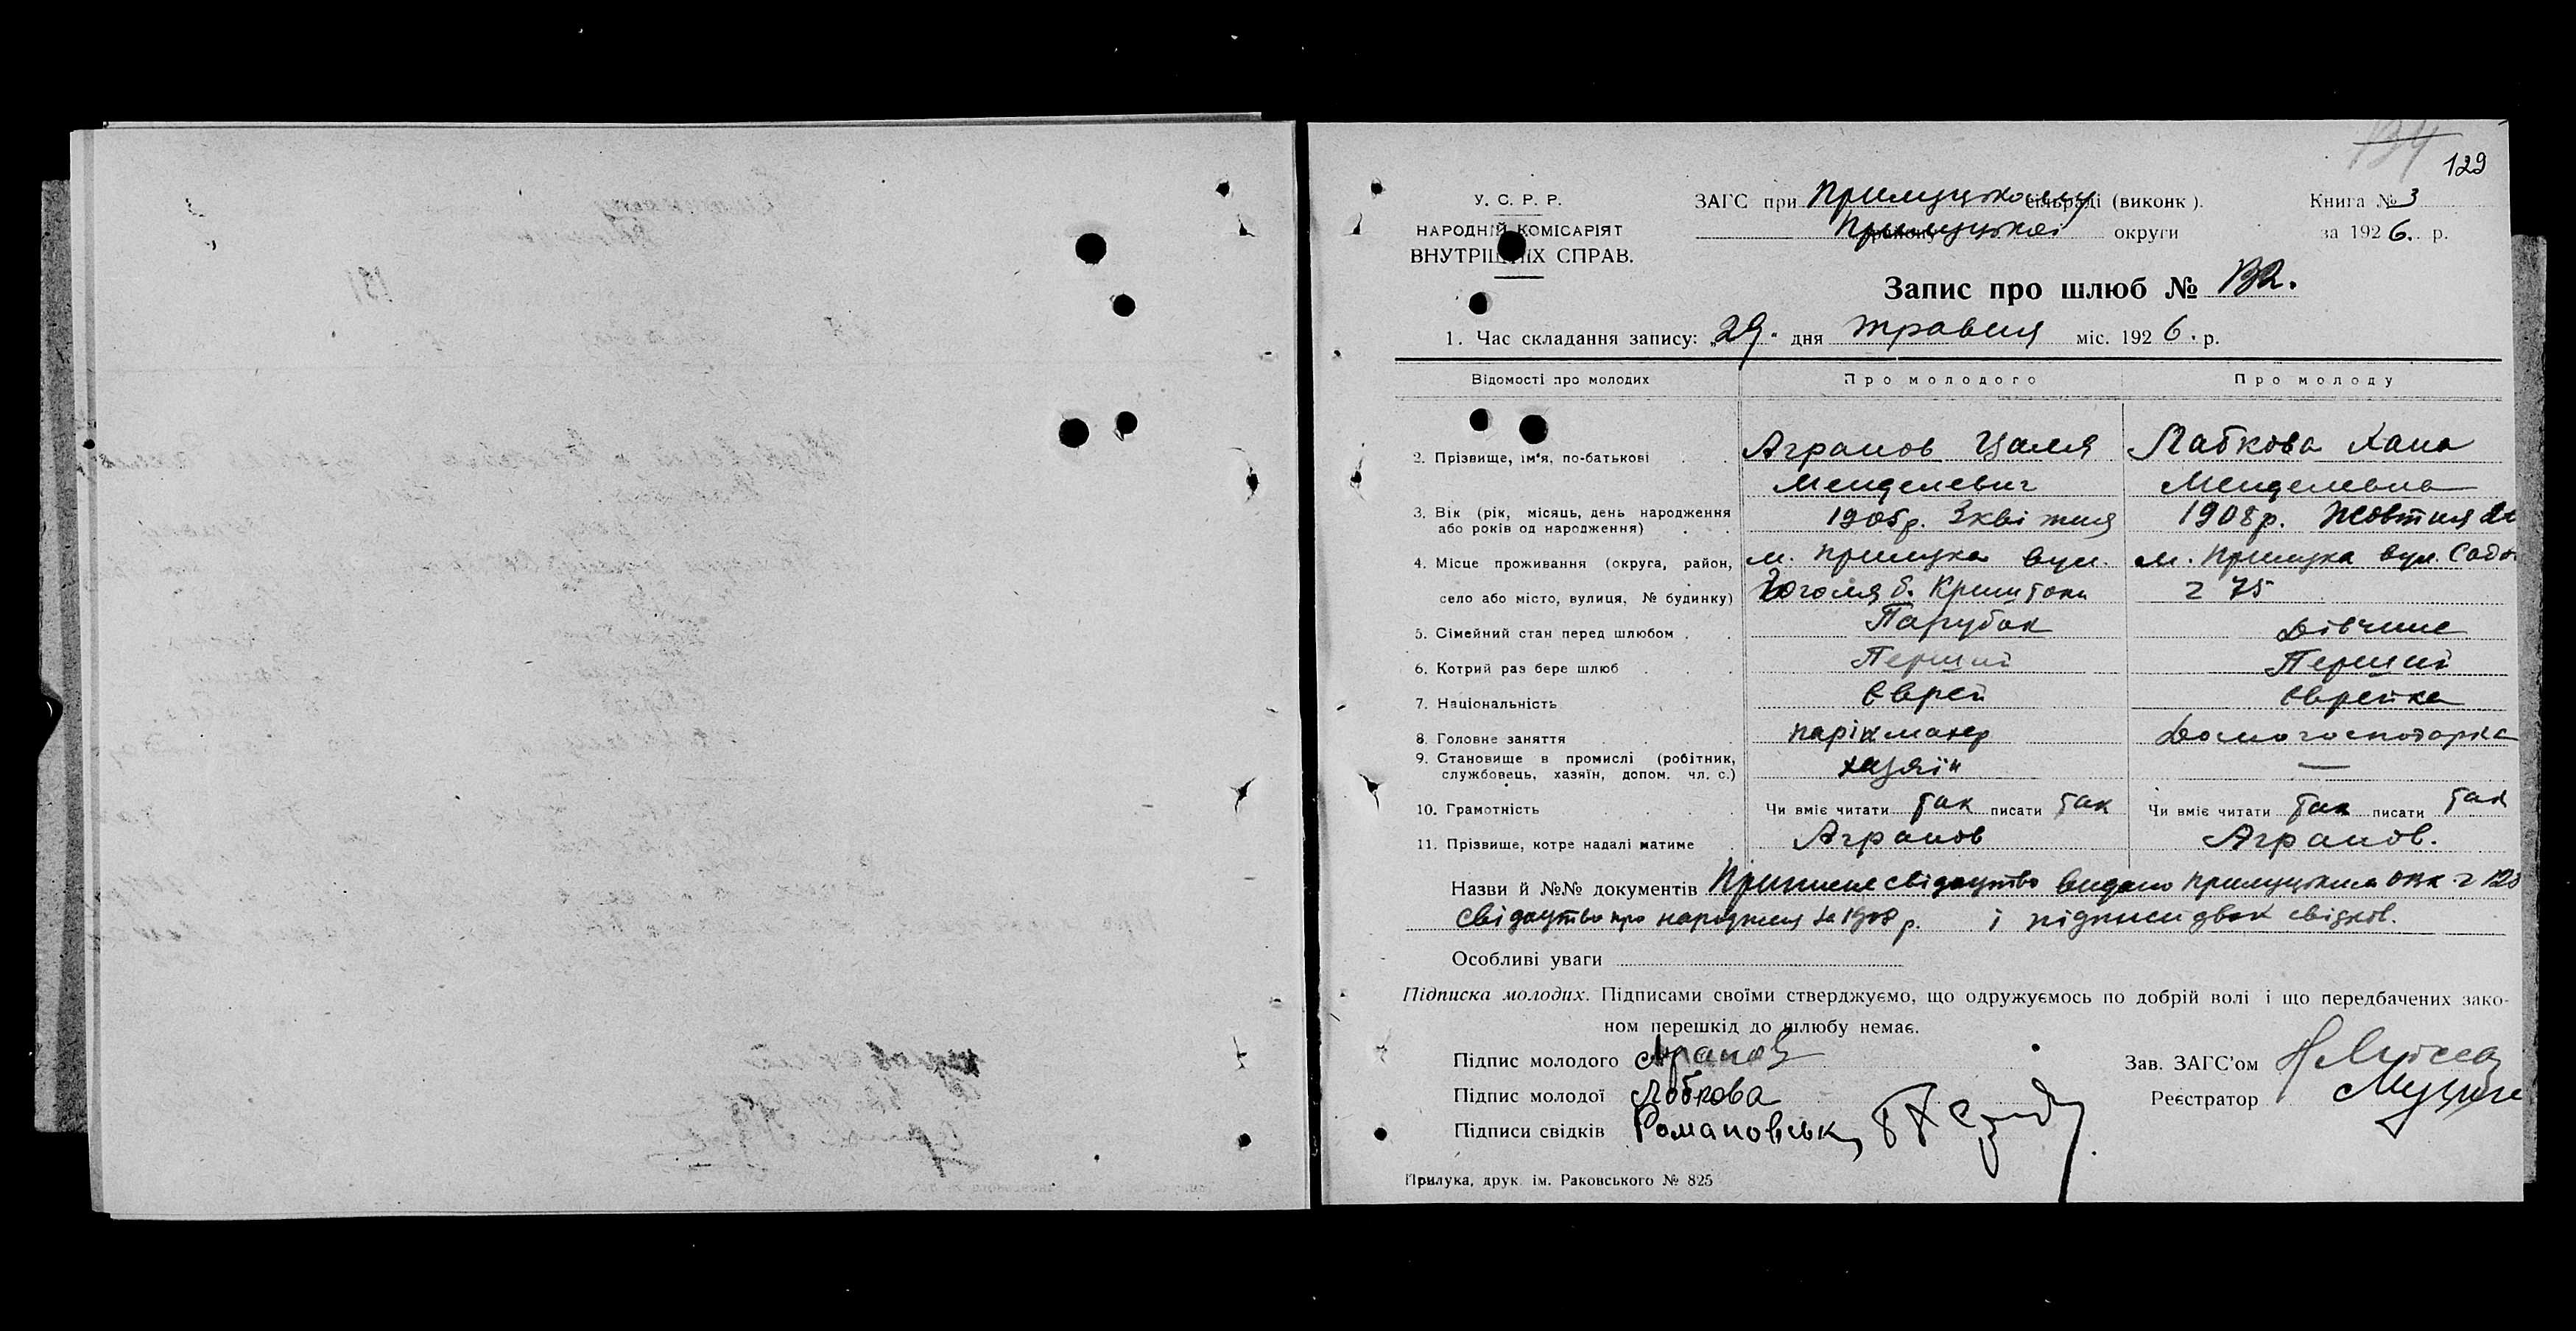 134
129
У. С. Р. Р.
НАРОДНІЙ КОМІСАРІЯТ
ВНУТРІШНІХ СПРАВ.
ЗАГС при Прилуцькому сільраді (виконк).
району Прилуцької округи
Книга № 3
за 1926. р.
Запис про шлюб № 132.
1. Час складання запису: „29" дня травня міс. 1926. р.
Відомості про молодих
Про молодого
Про молоду
2. Прізвище, ім'я, по-батькові
Агранов Цаля
Менделевич
Лабкова Хана
Менделевна
3. Вік (рік, місяць, день народження
або років од народження)
1905р. 3 квітня
1908р. Жовтня
4. Місце проживання (округа, район,
село або місто, вулиця, № будинку)
м. Прилука вул.
Гоголя б.
м. Прилука вул. Садо
75
5. Сімейний стан перед шлюбом
Парубок
Дівчине
6. Котрий раз бере шлюб
Перший
Перший
7. Національність
Єврей
Єврейка
8. Головне заняття
парікмахер
Домогосподарка
9. Становище в промислі (робітник,
службовець, хазяїн, допом. чл. с.)
хазяїн
—
10. Грамотність
Чи вміє читати так писати так
Чи вміє читати так писати так
11. Прізвище, котре надалі матиме
Агранов
Агранов.
Назви й №№ документів Приписне свідоцтво видано Прилуцьким
свідоцтво про народження за 1908 р. і підписи двох свідків.
Особливі уваги
Підписка молодих. Підписами своїми стверджуємо, що одружуємось по добрій волі і що передбачених зако-
ном перешкід до шлюбу немає.
Підпис молодого Агранов
Підпис молодої Лобкова
Підписи свідків Романовськ
Зав. ЗАГС'ом
Реєстратор
Прилука, друк. ім. Раковського № 825